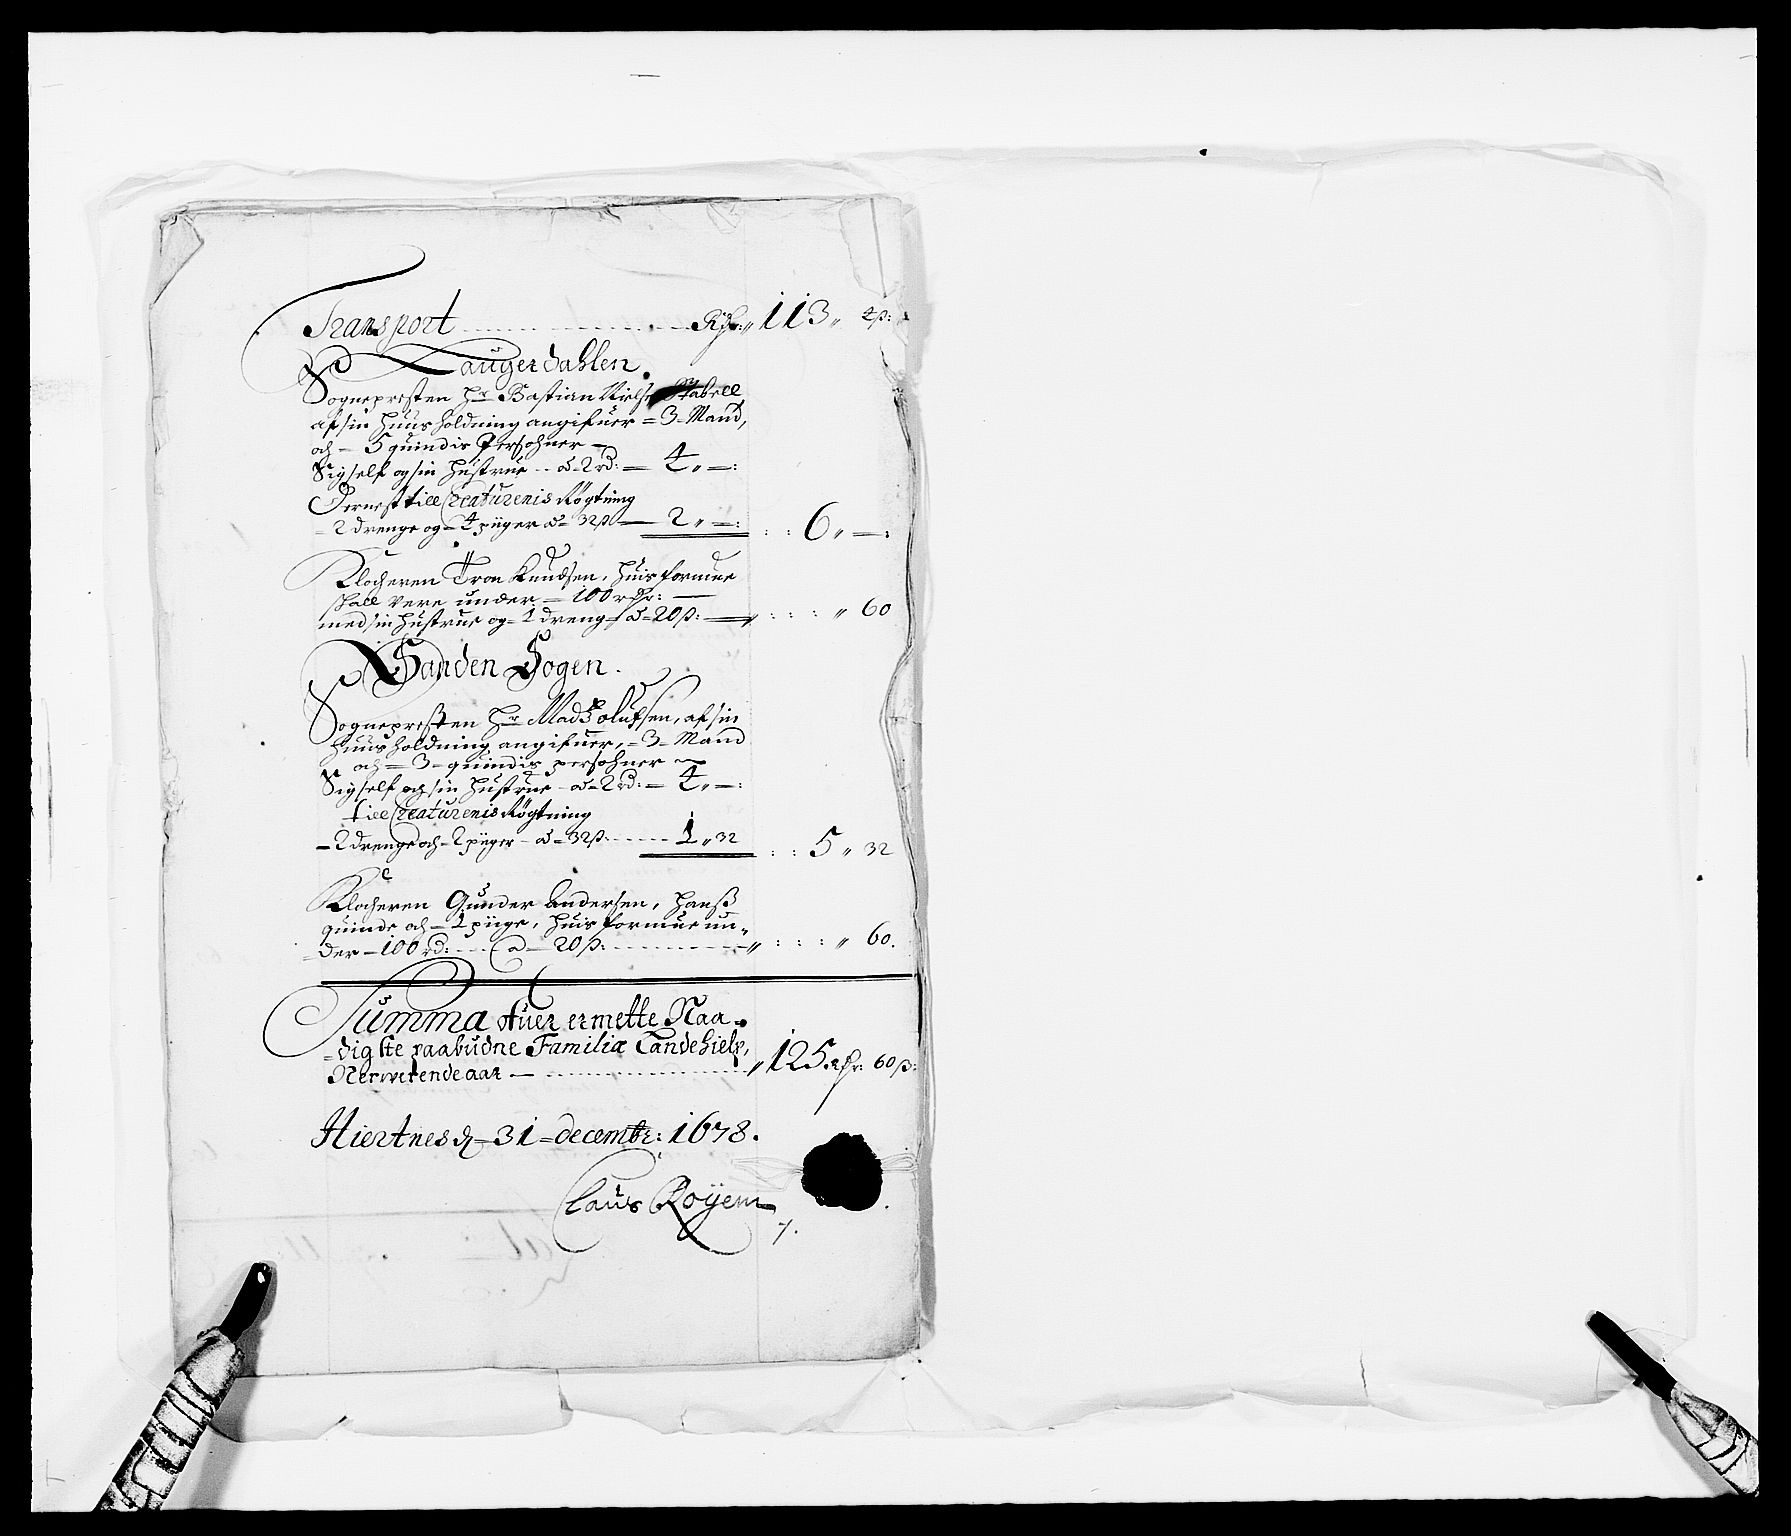 Transport Rdr: „ 113 „ 4 ß:
Laugerdahlen.
Sognepresten Hr Bastian Nielsen Stabell
af sin Huusholdning angifuer = 3 = Mand,
och - 5 quindis Persohner -
Sig self og sin Hustrue -- a 2 rd: — 4 „ —:
Dernest till Creaturenis Røgtning
= 2 drenge og = 4 piiger a = 32 ß — 2 „ —: : : 6 „ —:
Klocheren Tron Knudsen, Huis formue
skall vere under = 100 rdr: —
med sin Hustrue og = 1 dreng a = 20 ß: — „ : : : „ 60
Sanden Sogen.
Sognepresten Hr Mads Olufsen, af sin
Huusholdning angifuer, = 3 = Mand
och = 3 = quindis persohner
Sig self og sin Hustrue - a = 2 rd: = 4 „ —:
till Creaturenis Røgtning
= 2 drenge och = 2 piiger - a = 32 ß: 1 „ 32 : : 5 „ 32
Klocheren Gunder Andersen, Hanß
quinde och = 1 piige, Huis formue un„
= der = 100 rd: a 20 ß: „ : : : „ 60.
Summa Ofuer ermette Naa=
= digste paabudne Familiæ Landehielp,
Nerverende aar — „ 125 Rdr: 60 ß:
Hiertnes d = 31 = decembr: 1678.
Claus Røyem